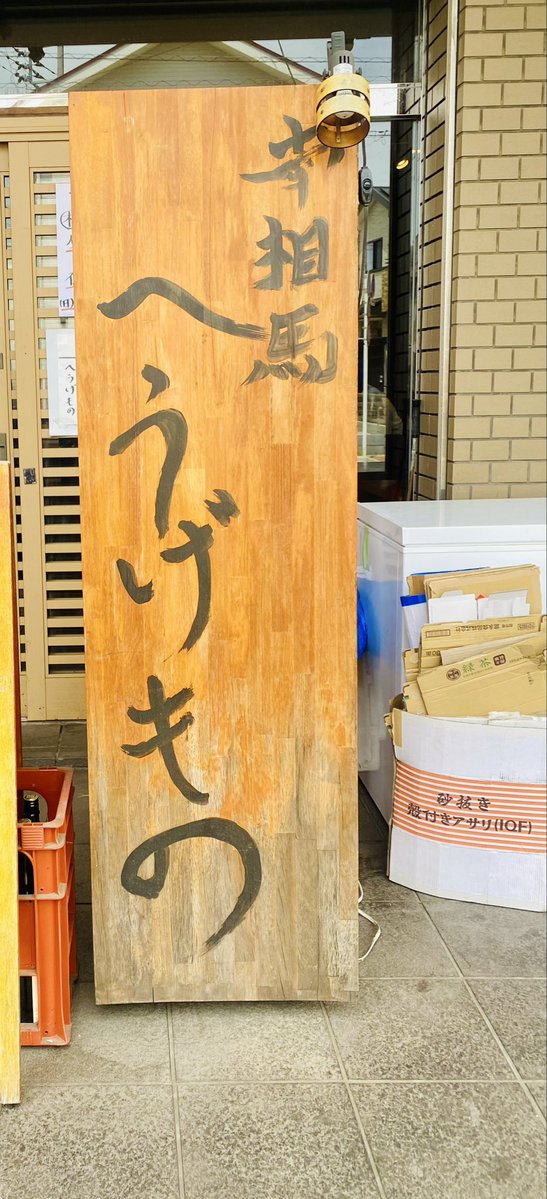 相馬
へうげもの
へうげもの
緑茶
砂抜き
殻付きアサリ(IQF)